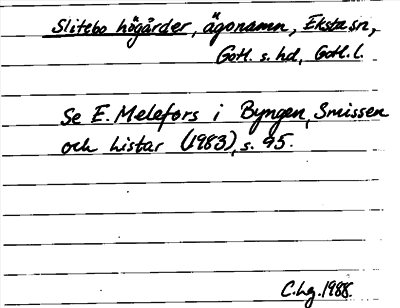 Slitebo högårder, ägonamn, Eksta sn,
Gotl. s. hd, Gotl. l.
Se E. Melefors i Byngen, Smissen
och listar (1983), s. 95.
C. Lg. 1988